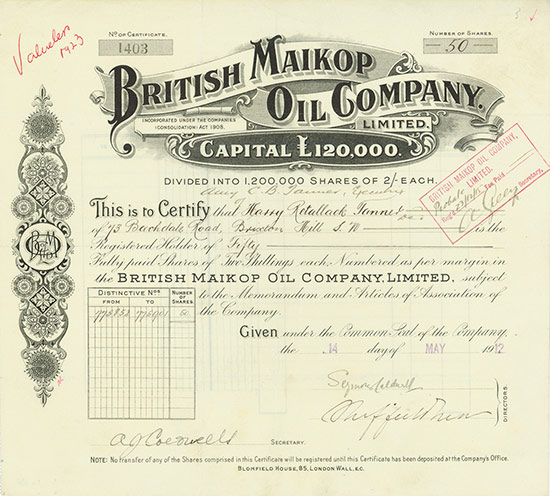 Valueless
1923
No. OF CERTIFICATE.
1403
NUMBER OF SHARES.
50
BRITISH MAIKOP
OIL COMPANY.
LIMITED.
INCORPORATED UNDER THE COMPANIES
(CONSOLIDATION) ACT 1908.
CAPITAL £120,000.
DIVIDED INTO 1,200,000 SHARES OF 2/- EACH.
BRITISH MAIKOP OIL COMPANY,
LIMITED.
Probate
Fee Paid
Secretary.
This is to Certify that Harry Retallack
of 73 Road, Brixton Hill S.W. is the
Registered Holder of Fifty
Fully paid Shares of Two Shillings each Numbered as per margin in
the BRITISH MAIKOP OIL COMPANY, LIMITED, subject
to the Memorandum and Articles of Association of
the Company.
DISTINCTIVE Nos.
FROM TO
NUMBER OF SHARES
50
Given under the Common Seal of the Company,
the 14 day of MAY 1912
DIRECTORS.
SECRETARY.
NOTE: No transfer of any of the Shares comprised in this Certificate will be registered until this Certificate has been deposited at the Company's Office.
BLOMFIELD HOUSE, 85, LONDON WALL, E.C.